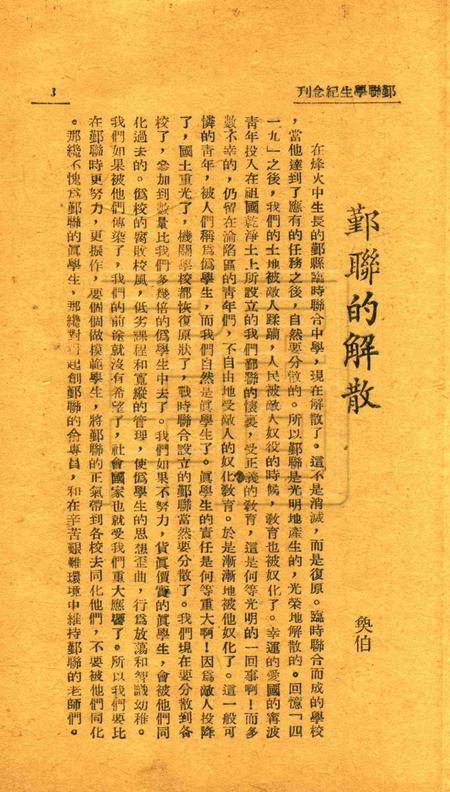 鄞聯學生紀念刊
3
鄞聯的解散
奐伯
在烽火中生長的鄞縣臨時聯合中學，現在解散了。這不是消滅，而是復原。臨時聯合而成的學校
，當他達到了應有的任務之後，自然要分散的。所以鄞聯是光明地產生的，光榮地解散的。回憶「四
一九」之後，我們的土地被敵人蹂躪，人民被敵人奴役的時候，敎育也被奴化了。幸運的愛國的甯波
青年投入在祖國乾淨土上所設立的我們鄞聯的懷裏，受正義的敎育，這是何等光明的一回事啊！而多
數不幸的，仍留在淪陷區的青年們，不自由地受敵人的奴化敎育。於是漸漸地被他奴化了。這一般可
憐的青年，被人們稱爲僞學生，而我們自然是眞學生了。眞學生的責任是何等重大啊！因爲敵人投降
了，國土重光了，機關學校都恢復原狀了，戰時聯合設立的鄞聯當然要分散了。我們現在要分散到各
校了，參加到數量比我們多幾倍的僞學生中去了。我們如果不努力，貨眞價實的眞學生，會被他們同
化過去的。僞校的腐敗校風，低劣課程和寬縱的管理，使僞學生的思想歪曲，行爲放蕩和智識幼稚。
我們如果被他們傳染了，我們的前途就沒有希望了，社會國家也就受我們重大應響了。所以我們要比
在鄞聯時更努力，更振作，要個個做模範學生，將鄞聯的正氣帶到各校去同化他們，不要被他們同化
。那纔不愧爲鄞聯的眞學生，那纔對得起創鄞聯的俞專員，和在辛苦艱難環境中維持鄞聯的老師們。